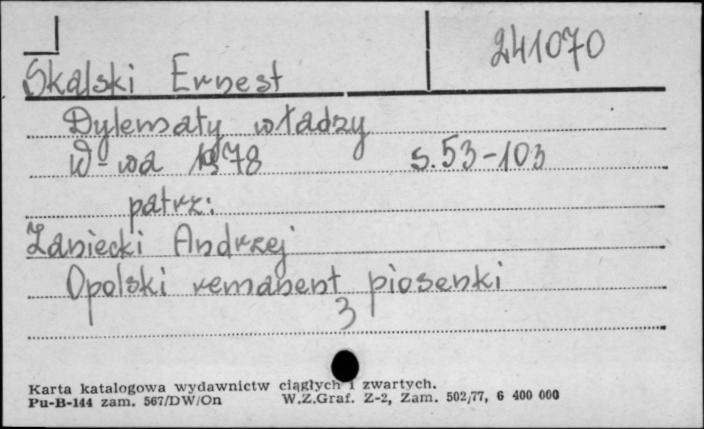 241070
Skalski Ernest
Dylematy władzy
W-wa 1978 s. 53-103
patrz:
Zaniecki Andrzej
Opolski remanent piosenki
3
Karta katalogowa wydawnictw ciągłych i zwartych.
Pu-B-144 zam. 567/DW/On W.Z.Graf. Z-2, Zam. 502/77, 6 400 000